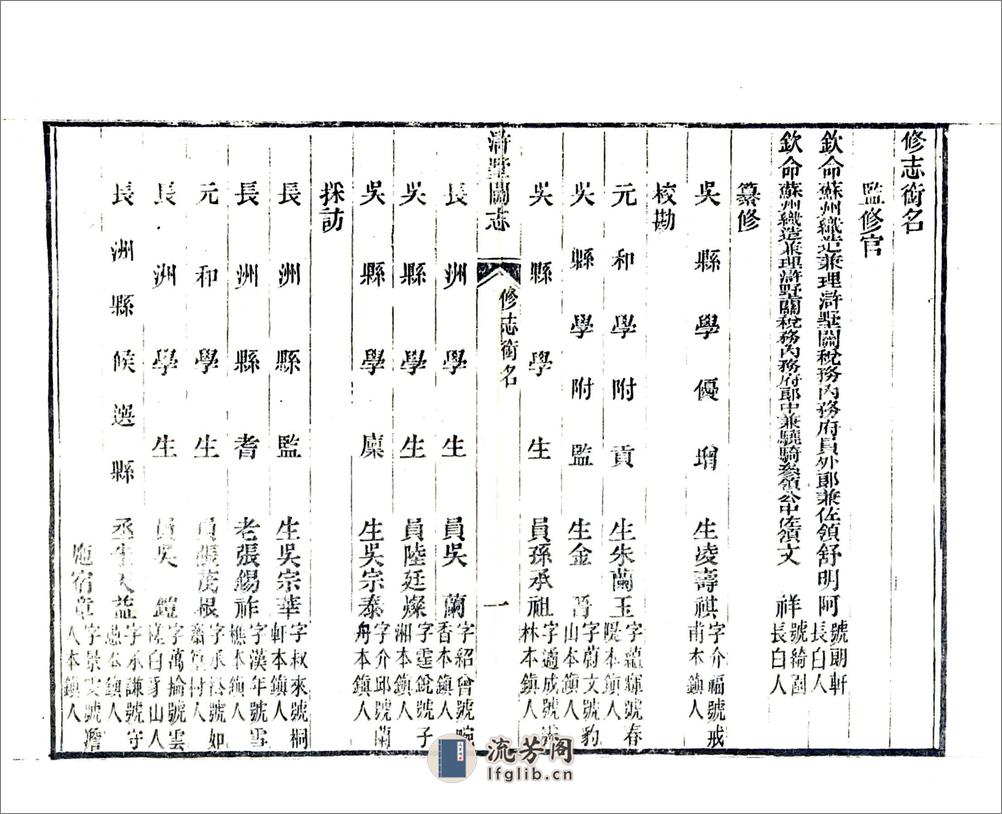 修志銜名
監修官
欽命蘇州織造兼理滸墅關稅務內務府員外郎兼佐領舒明阿號朗軒長白人
欽命蘇州織造兼理滸墅關稅務內務府郎中兼驍騎參領公中佐領文祥號綺園長白人
纂修
吳縣學優增生凌壽祺字介福號戒甫本鎮人
校勘
元和學附貢生朱蘭玉字蘊輝號春隄本鎮人
吳縣學附監生金字蔚文號豹山本鎮人
吳縣學生員孫承祖字適成號林本鎮人
滸墅關志
修志銜名
一
長洲學生員吳蘭字紹曾號畹香本鎮人
吳縣學生員陸廷燦字霆銳號子湘本鎮人
吳縣學廩生吳宗泰字介邱號蘭舟本鎮人
採訪
長洲縣監生吳宗華字叔來號桐軒本鎮人
長洲縣耆老張錫祚字漢年號雪樵本鎮人
元和學生員張茂根字承號如村人
長洲學生員吳鐘字萬掄號雲白豸山人
長洲縣候選縣丞益字承謙號守愚本鎮人
施宿章字景號澹人本鎮人
流芳阁
lfglib.cn